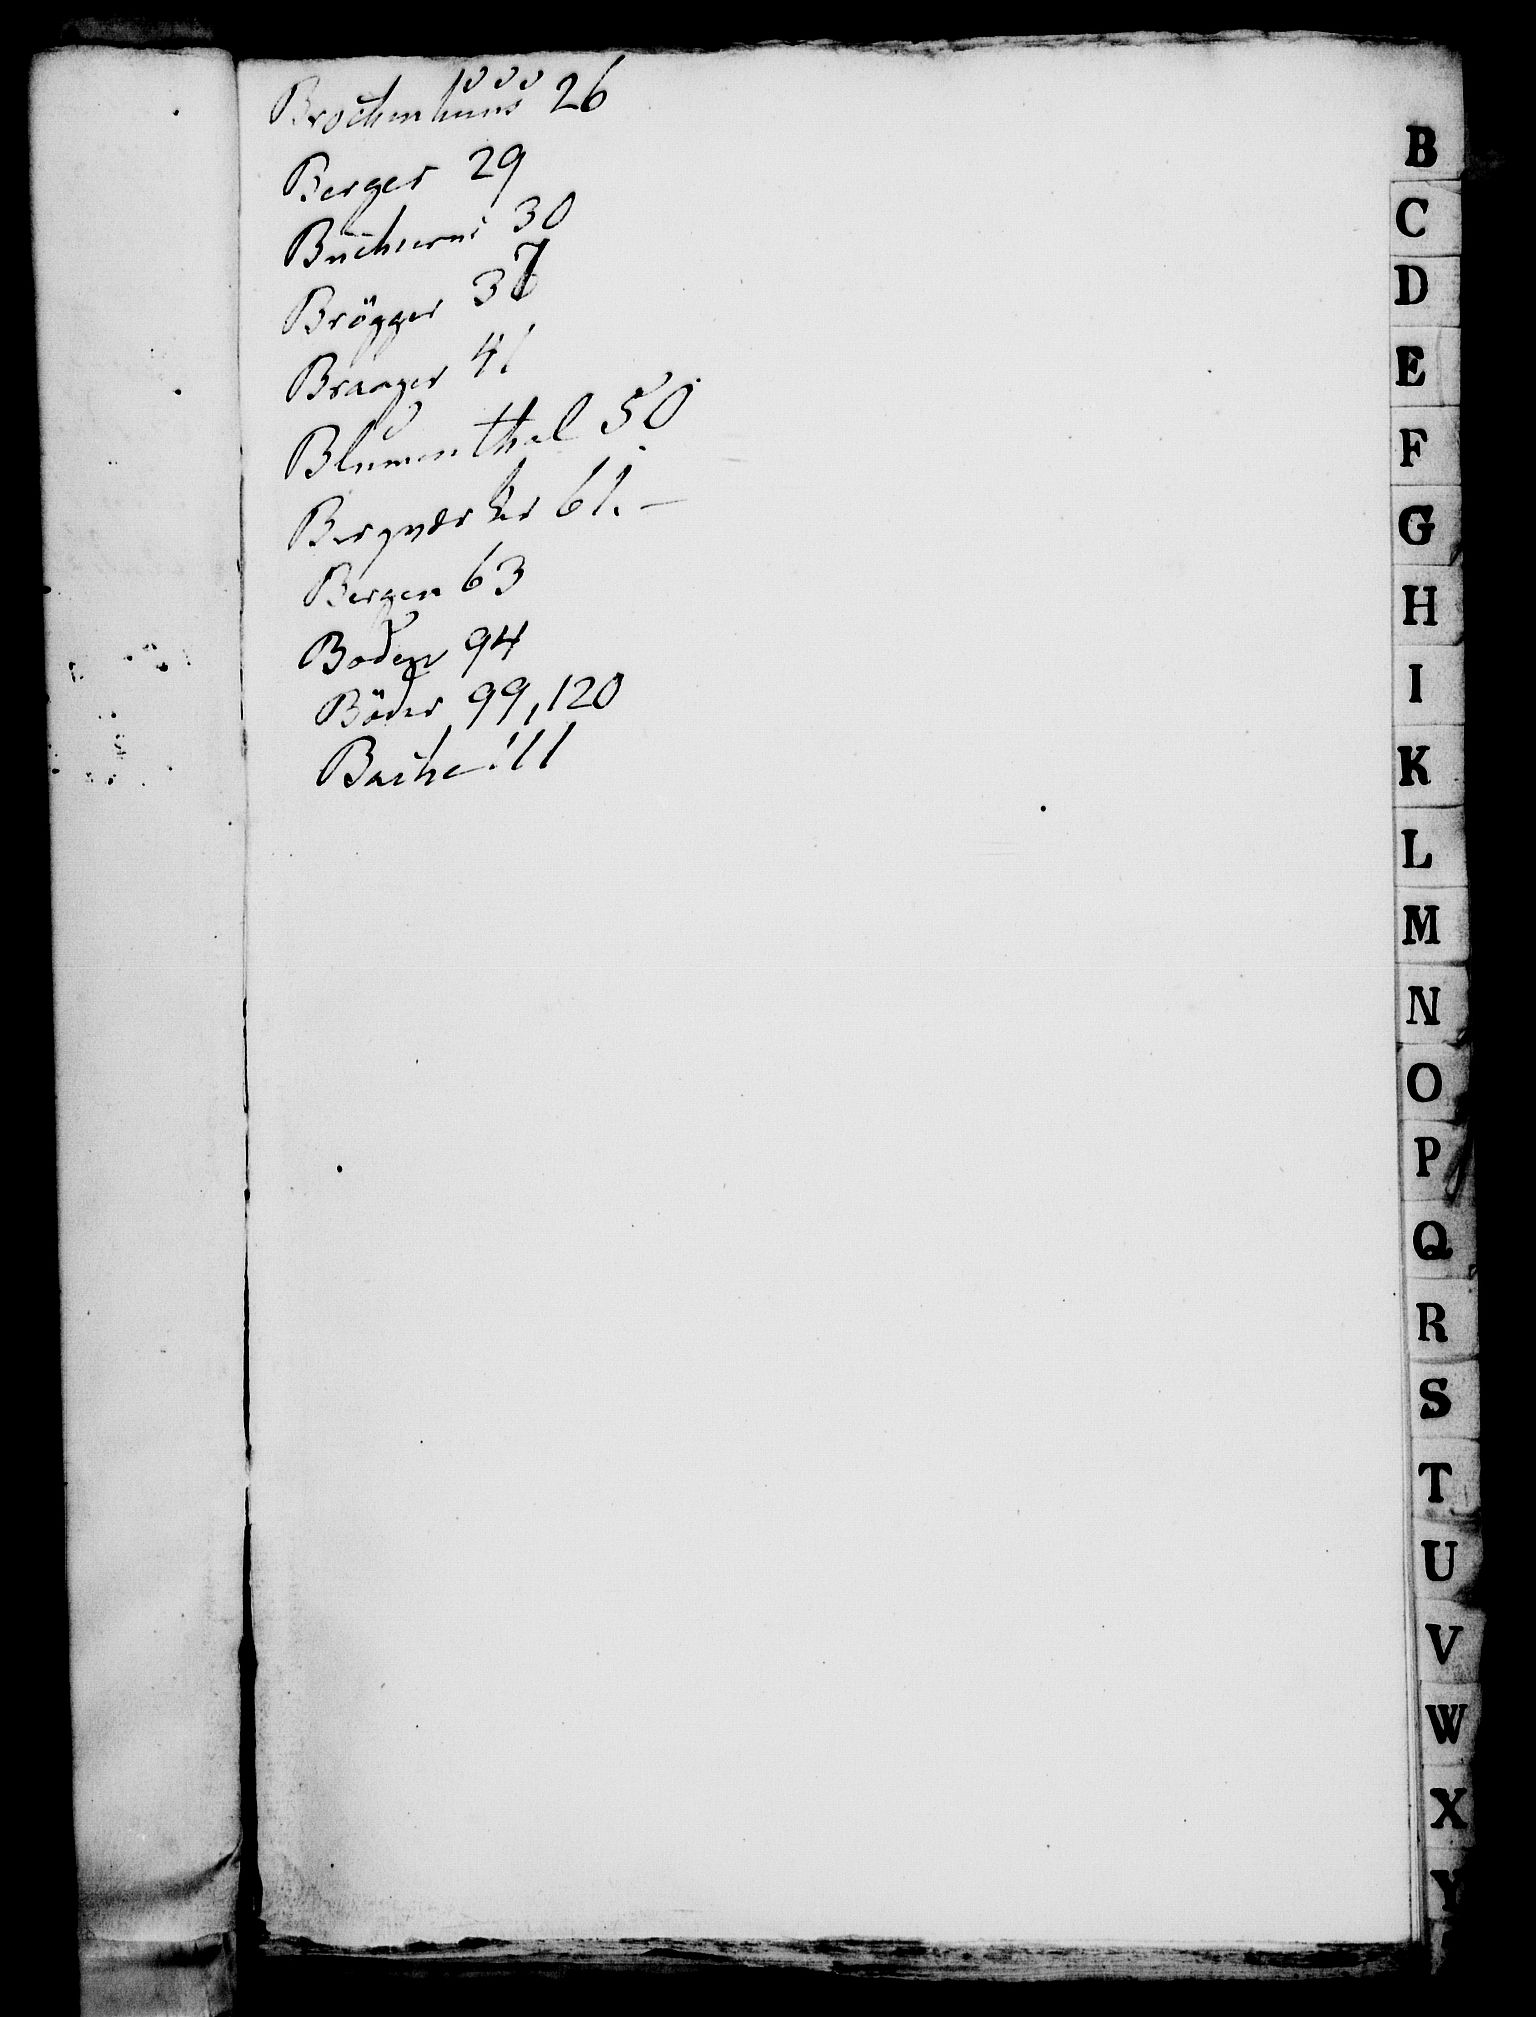 Brochenhuus 26
Berger 29
30
Brögger 37
Braager 41
Blumenthal 50
Bergværker 61.—
Bergen 63
Boden 94
Böder 99,120
Bache 111
B
C
D
E
F
G
H
I
K
L
M
N
O
P
Q
R
S
T
U
V
W
X
Y